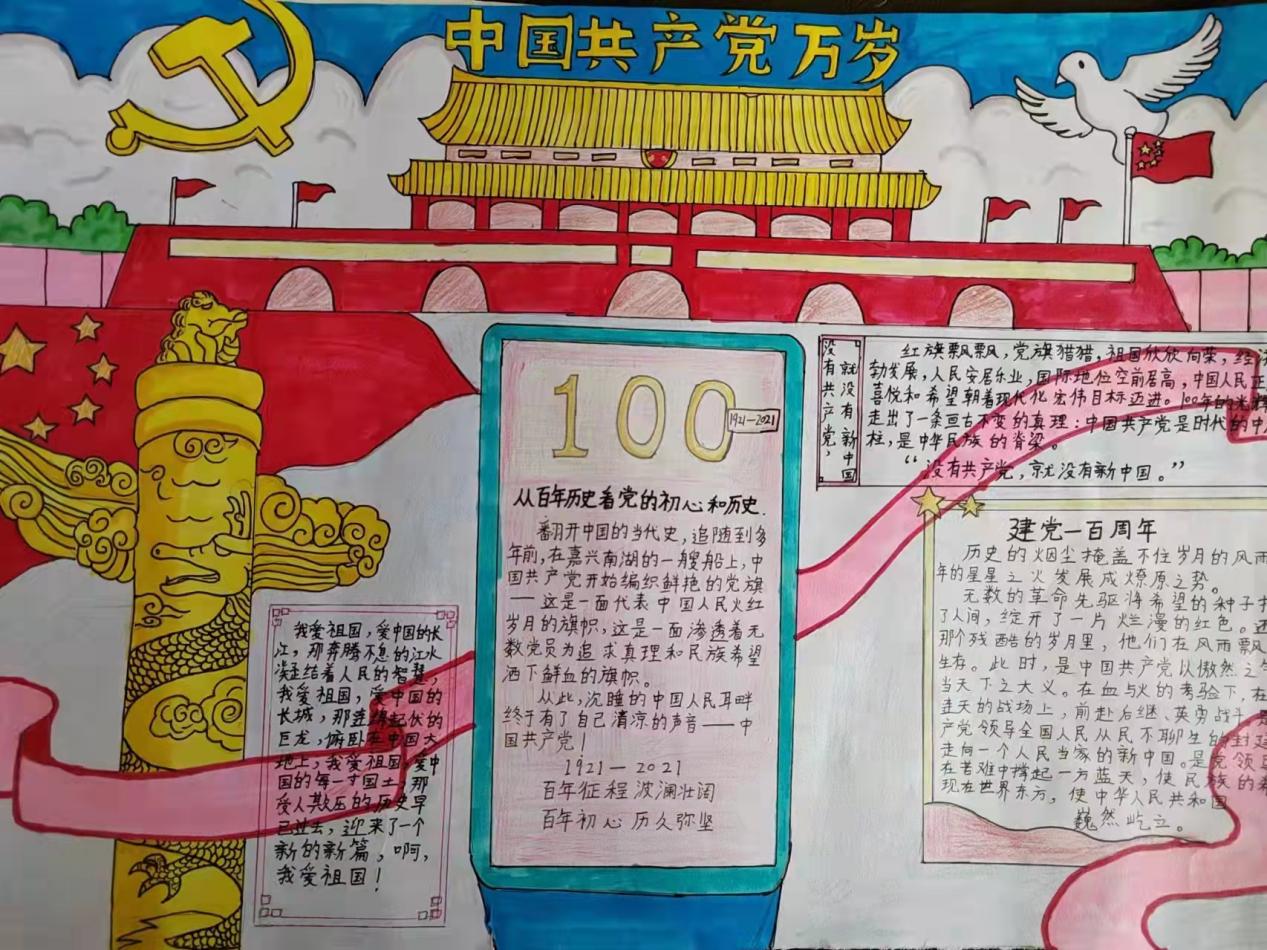 中国共产党万岁
100
1921-2021
从百年历史看党的初心和历史.
翻开中国的当代史,追随到多
年前,在嘉兴南湖的一艘船上,中
国共产党开始编织鲜艳的党旗
——这是一面代表中国人民火红
岁月的旗帜,这是一面渗透着无
数党员为追求真理和民族希望
洒下鲜血的旗帜。
从此,沉睡的中国人民耳畔
终于有了自己清凉的声音——中
国共产党!
1921—2021
百年征程 波澜壮阔
百年初心 历久弥坚
我爱祖国,爱中国的长
江,那奔腾不息的江水
凝结着人民的智慧,
我爱祖国,爱中国的
长城,那连绵起伏的
巨龙,俯卧在中国大
地上,我爱祖国,爱中
国的每一寸国土,那
受人欺压的历史早
已过去,迎来了一个
新的新篇,啊,
我爱祖国!
没有共产党,
就没有新中国
红旗飘飘,党旗猎猎,祖国欣欣向荣,经济
勃发展,人民安居乐业,国际地位空前居高,中国人民正
喜悦和希望朝着现代化宏伟目标迈进。100年的光辉
走出了一条亘古不变的真理:中国共产党是时代的中
柱,是中华民族的脊梁。
“没有共产党,就没有新中国。”
建党一百周年
历史的烟尘掩盖不住岁月的风雨
年的星星之火发展成燎原之势。
无数的革命先驱将希望的种子
了人间,绽开了一片烂漫的红色。还
那个残酷的岁月里,他们在风雨飘
生存。此时,是中国共产党以傲然之
当天下之大义。在血与火的考验下,在
连天的战场上,前赴后继、英勇战斗,是
产党领导全国人民从民不聊生的封建
走向一个人民当家的新中国。是党领导
在苦难中撑起一方蓝天,使民族的希
现在世界东方,使中华人民共和国
巍然屹立。